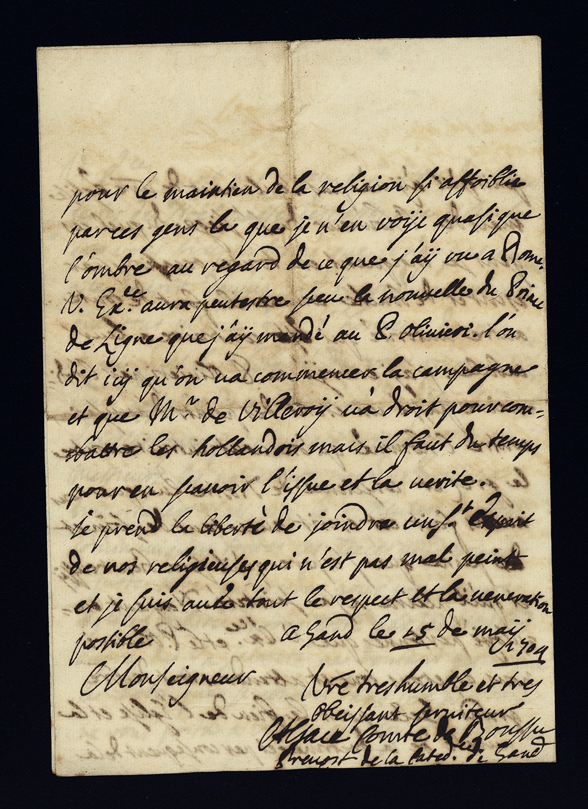 pour le maintien de la religion si affoiblie
parces gens la que je n'en voije quasique
l'ombre au regard de ce que j'aÿ vu a Rome.
V. Ex.ce aura peutestre sceu la nouvelle du Prince
de Ligne que j'aÿ mandé au P. olivieri. l'on
dit icij qu'on va commencer la campagne
et que Mr de Villeroij va droit pour com=
battre les hollandois mais il faut du temps
pour en scavoir l'issue et la verite.
Je prend la liberté de joindre un st Esprit
de nos religieuses qui n'est pas mal peint
et je suis avec tout le respect et la veneration
possible A Gand le 15 de maij
1704
Monseigneur Vre treshumble et tres
obeissant serviteur
Alsace Comte de Boussu
Prevost de la Cated. de Gand